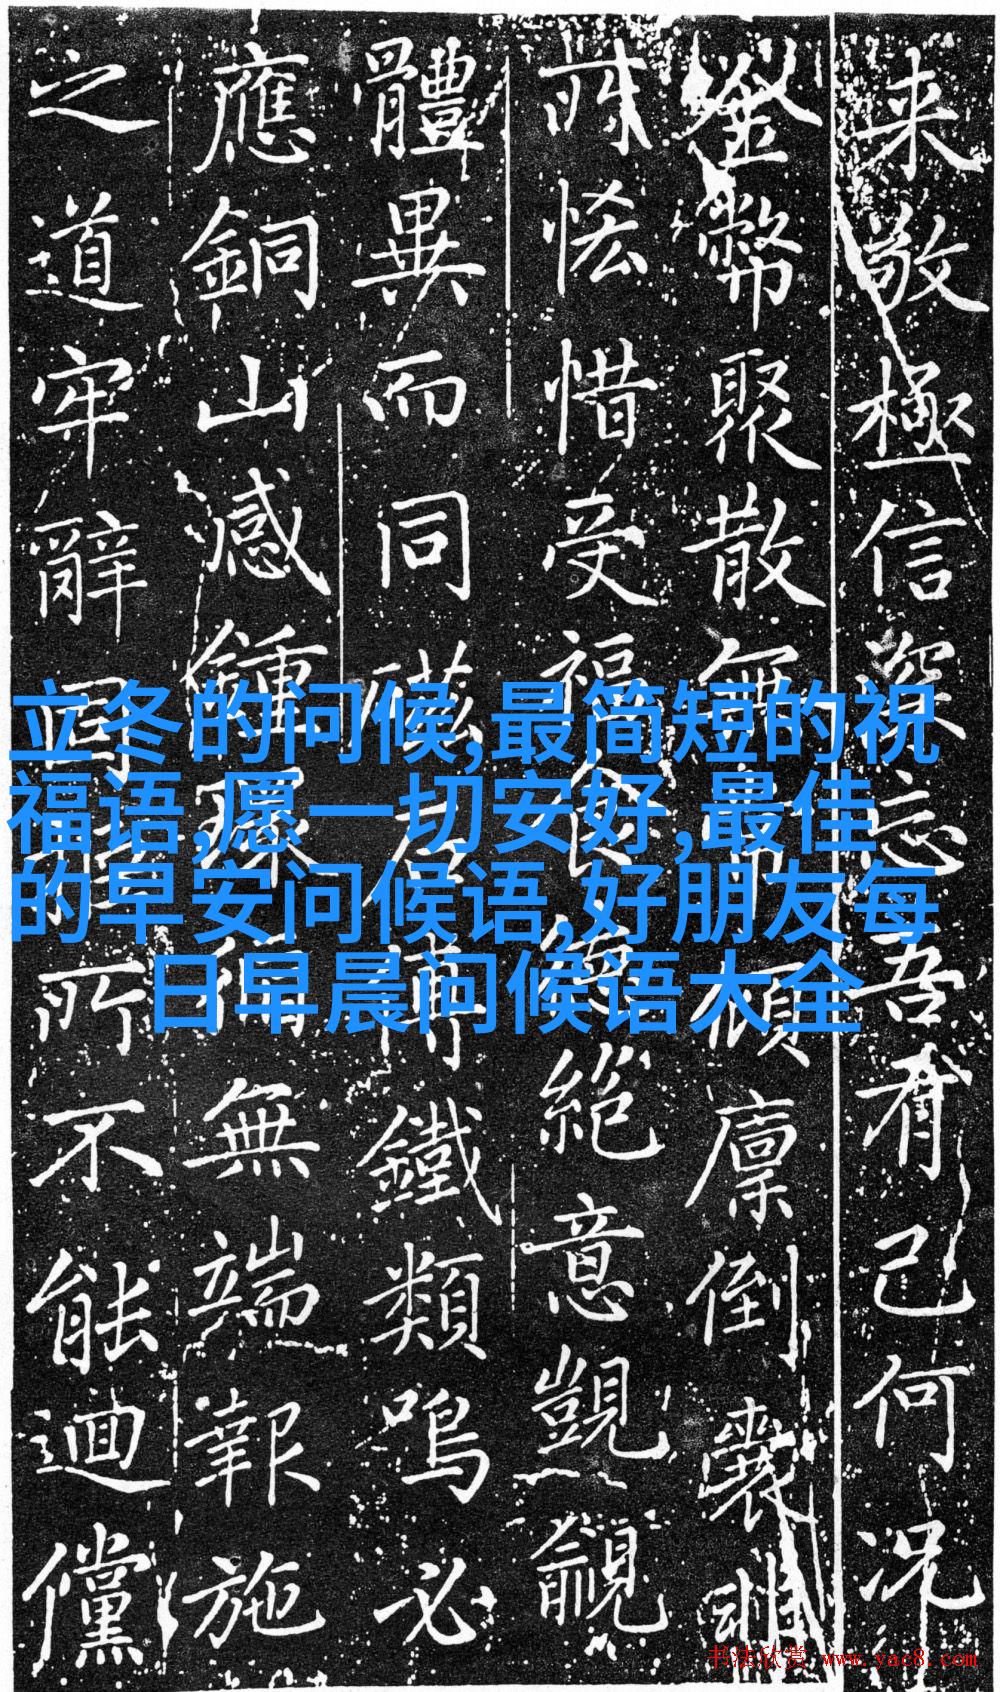 来敬極信深忘吾有己何况
金幣聚散無
廪倒裳
惜受福
絶意覬覦
體異而同
鐵類鳴必
應銅山感鍾
無端報施
之道牢辭
所不能迴儻
立冬的问候,最简短的祝
福语,愿一切安好,最佳
的早安问候语,好朋友每
日早晨问候语大全
书法欣赏 www.yac8.com